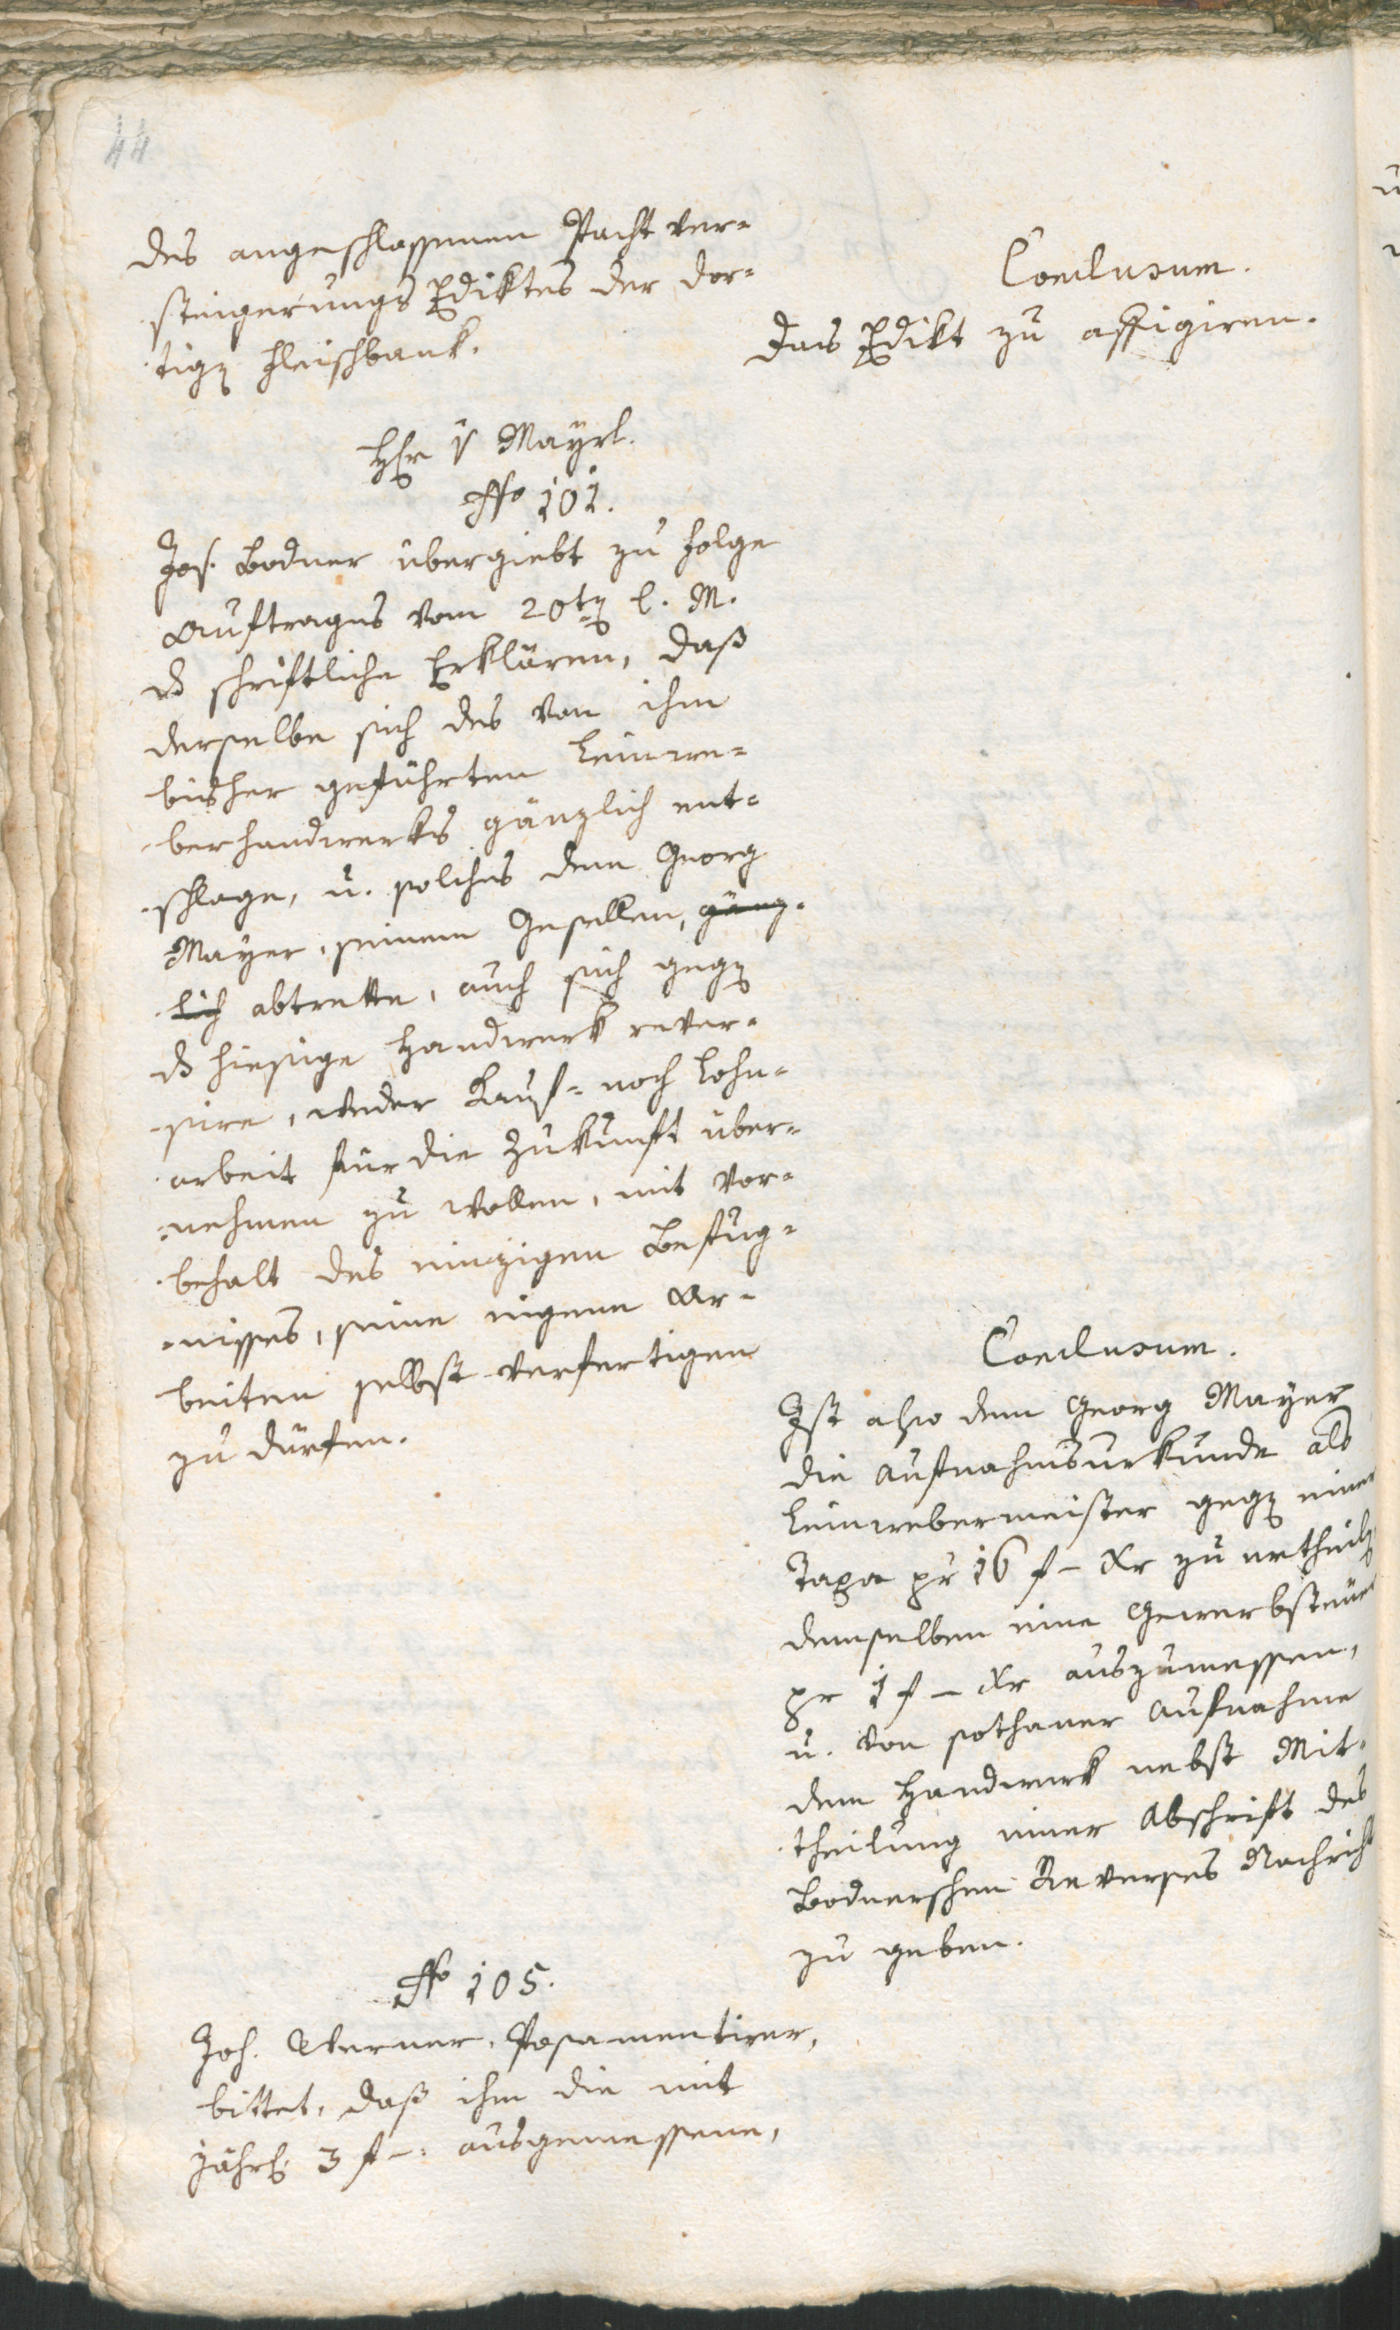 44
des angeschlossenen Pacht ver-
steigerungs Ediktes der dor-
tigen Fleischbank.
Conclusum.
Das Edikt zu affigiren.
Hr v Mayrl.
No 101.
Jos. Bodner übergiebt zu Folge
Auftrages vom 20ten l. M.
d schriftliche Erklären, daß
derselbe sich des von ihm
bisher geführten Leinwe-
berhandwerks gänzlich ent-
schlage, u. solches dem Georg
Mayer, seinem Gesellen, gänz-
lich abtrette, auch sich gegen
d hiesige Handwerk rever-
sire, weder Kauf- noch Lohn-
arbeit für die Zukunft über-
nehmen zu wollen, mit Vor-
behalt des einzigen Befug-
nisses, seine eigene Ar-
beiten selbst verfertigen
zu dürfen.
Conclusum.
Ist also dem Georg Mayer
die Aufnahmsurkunde als
Leinwebermeister gegen einer
Taxa pr 16 f – xr zu ertheilen
demselben eine Gewerbsteuer
pr 1 f – xr auszumessen,
u. von sothaner Aufnahme
dem Handwerk nebst Mit-
theilung einer Abschrift des
Bodnerschen Reverses Nachricht
zu geben.
No 105.
Joh. Werner, Posamentirer,
bittet, daß ihm die mit
jährl. 3 f –: ausgemessene,